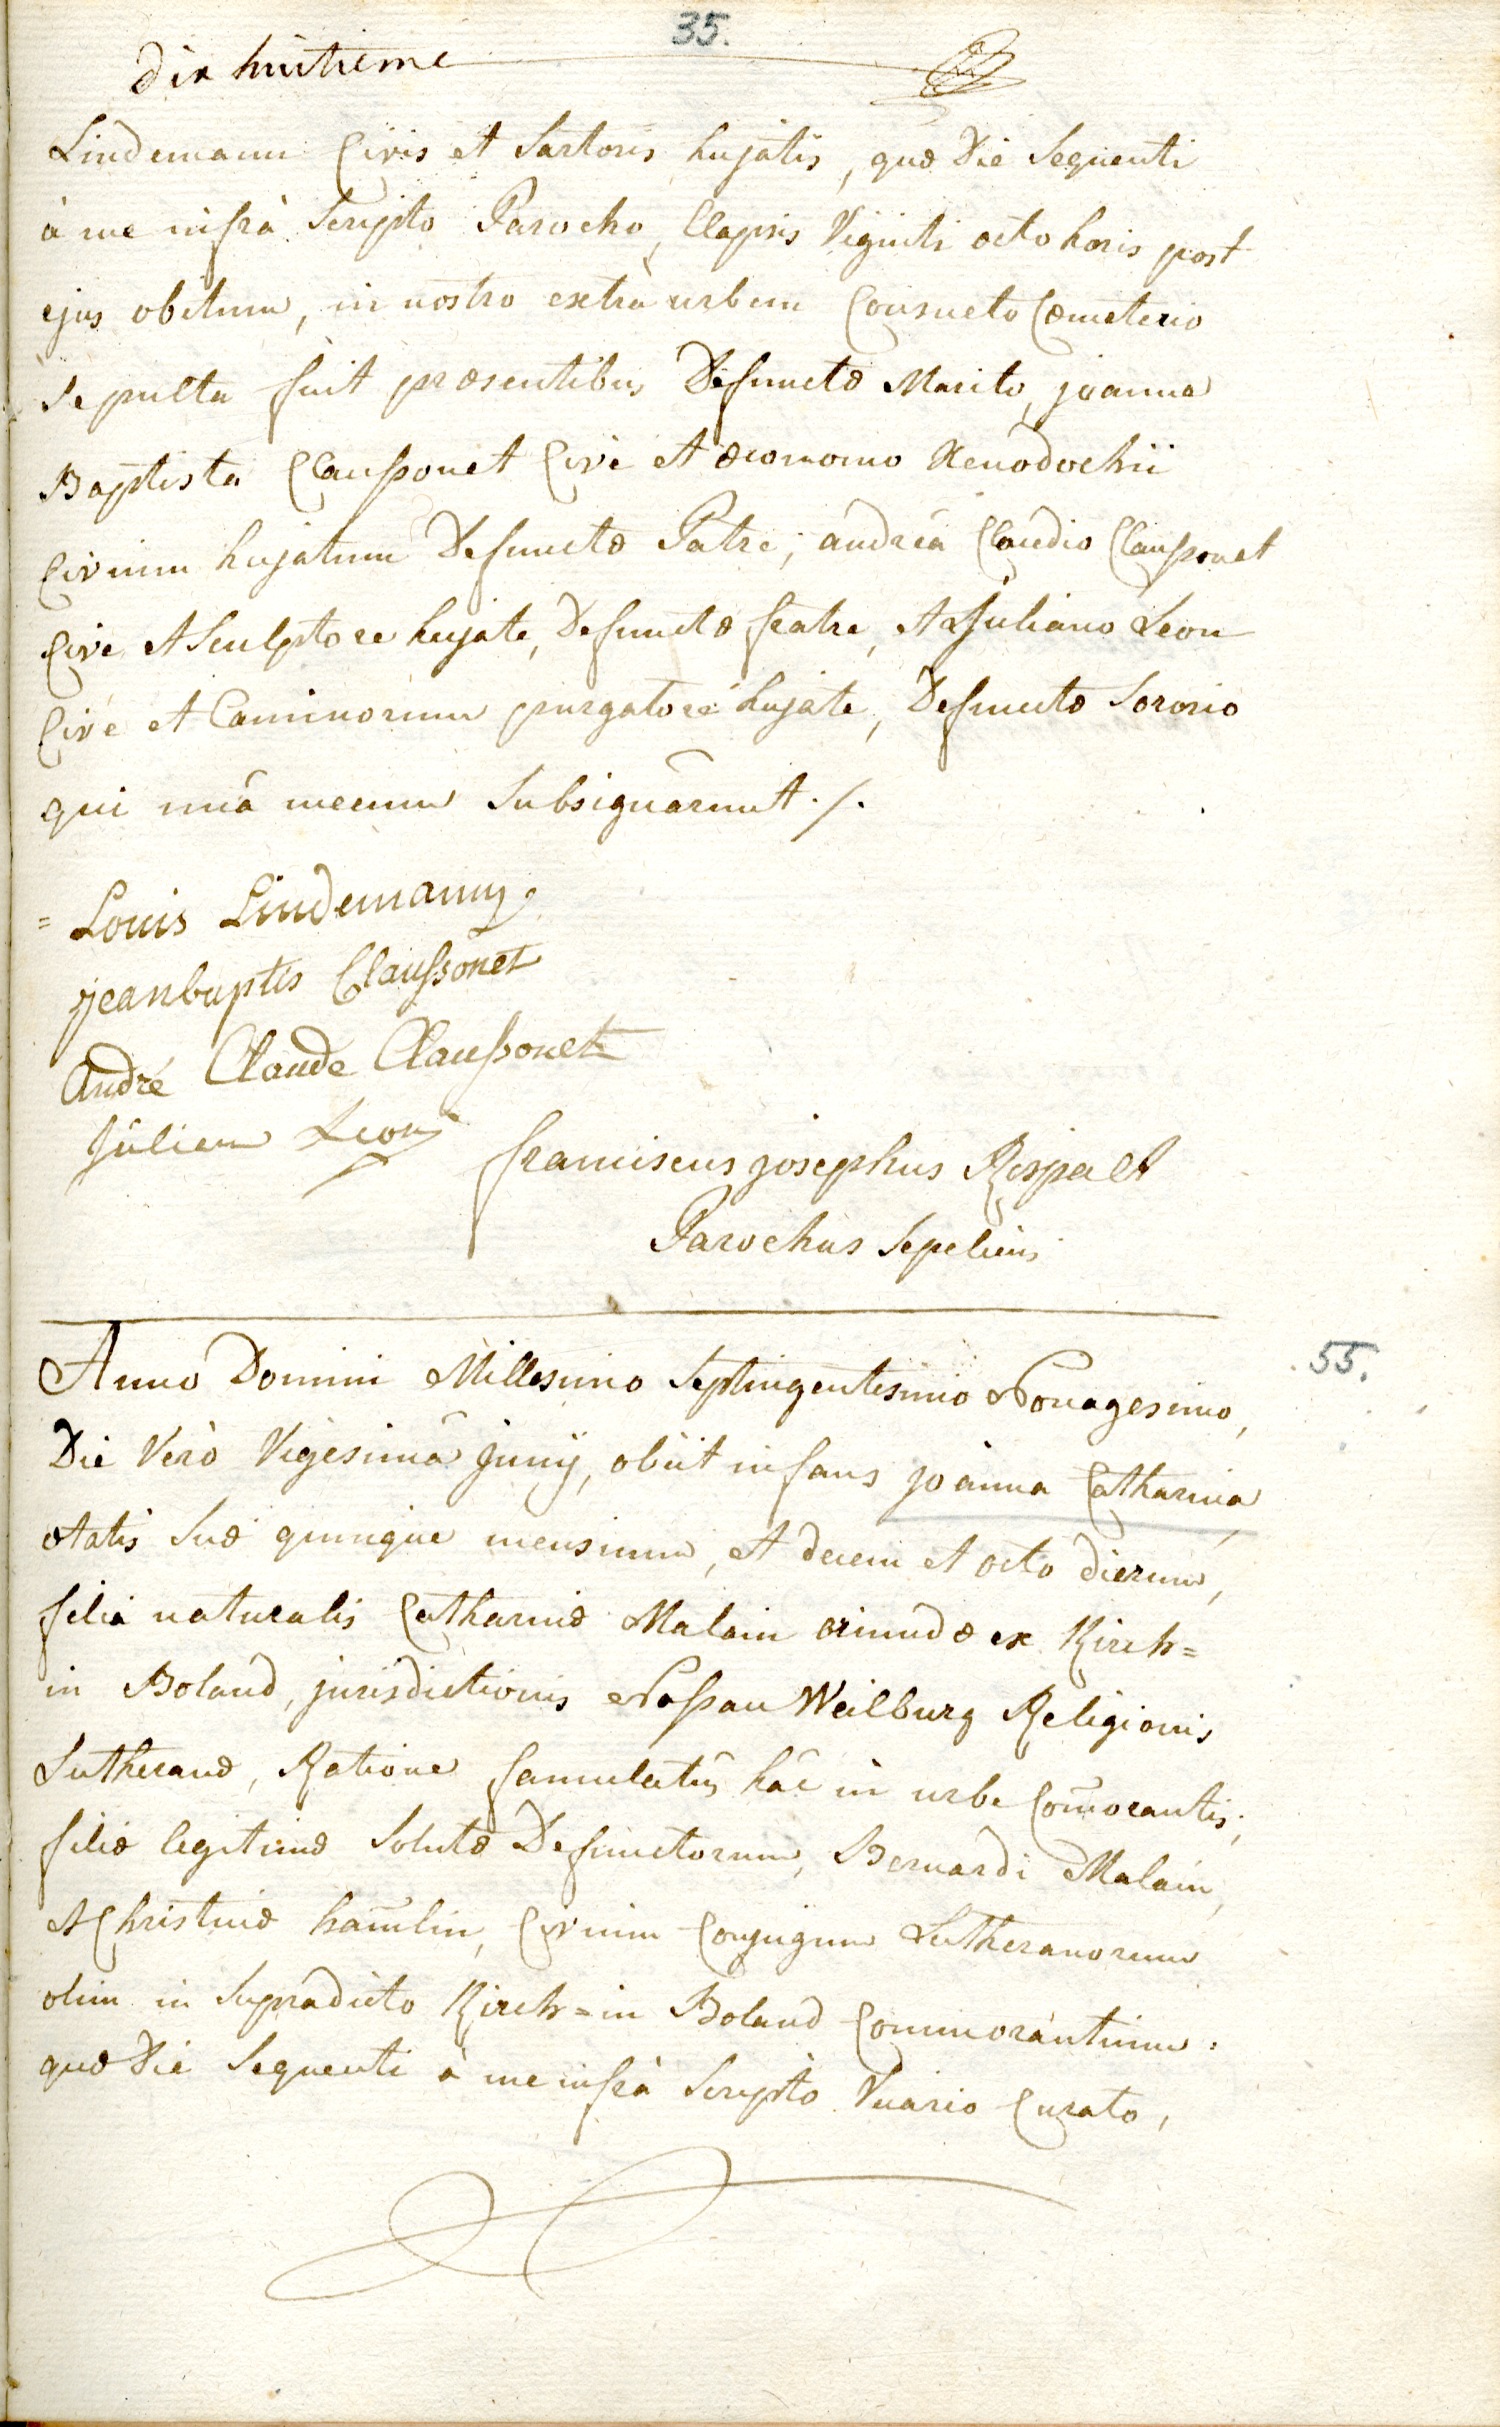 35.
dix huitieme
Lindemann Civis et Sartoris hujatis, quæ Die Sequenti
à me infrà Scripto Parocho, Elapsis Viginti octo horis post
ejus obitum, in nostro extrà urbem Consueto Cœmeterio
Sepulta fuit præsentibus Defunctæ Marito, joanne
Baptista Claussonet Cive et œconomo Xenodochii
Civium hujatum Defunctæ Patre, andréa Claudio Claussonet
Cive et Sculptore hujate, Defunctæ fratre, et Juliano Leon
Cive et Caminorum purgatore hujate, Defunctæ Sororio
qui unà mecum Subsignârunt ./.
= Louis Lindemann
jeanbaptis Claussonet
André Claude Claussonet
Julien Leon
franciscus josephus Rispalt
Parochus Sepeliens
55.
Anno Domini Millesimo Septingentesimo Nonagesimo,
Die Verò Vigesimâ Junij, obiit infans joanna Catharina,
ætatis Suæ quinque mensium, et decem et octo dierum,
filia naturalis Catharinæ Malain oriundæ ex Kirch=
in Boland, jurisdictionis Nassau Weilburg Religionis
Lutheranæ, Ratione famulatûs hâc in urbe Com̃orantis,
filiæ legitimæ Solutæ Defunctorum, Bernardi Malain,
et Christinæ ham̃lin, Civium Conjugum Lutheranorum
olim in Supradicto Kirch=in Boland Commorantium.
quæ Die Sequenti à me infrà Scripto Vicario Curato,